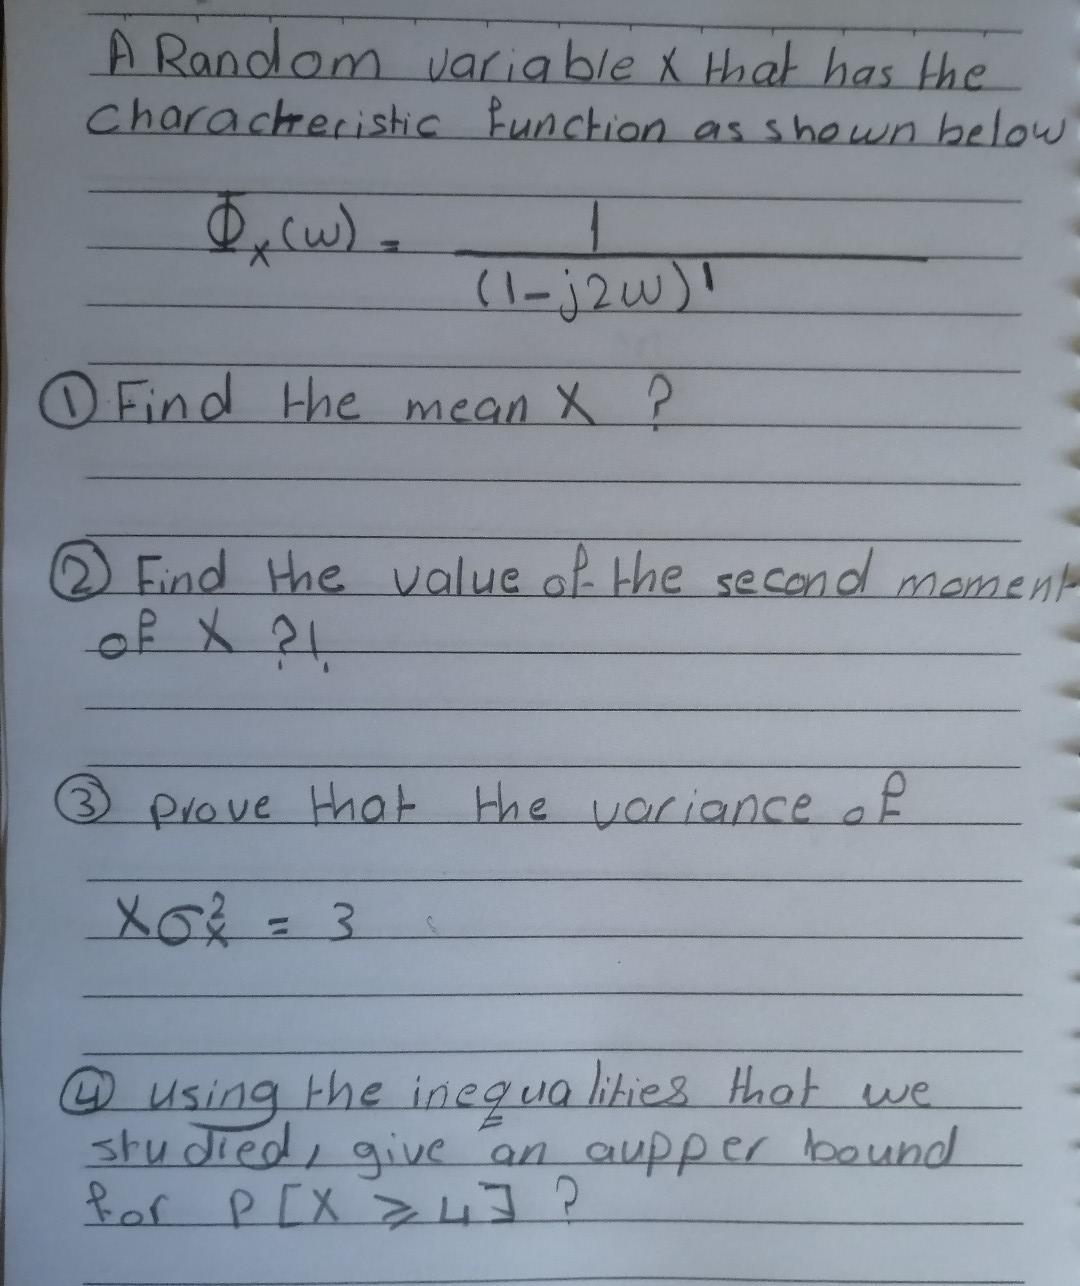 A Random variable X that has the
characteristic function as shown below
Φx(ω) = 1
(1-j2ω)¹
① Find the mean X ?
② Find the value of the second moment
of X ?!
③ prove that the variance of
Xσ²x = 3
④ using the inequalities that we
studied, give an aupper bound
for P[X ⩾ 4] ?